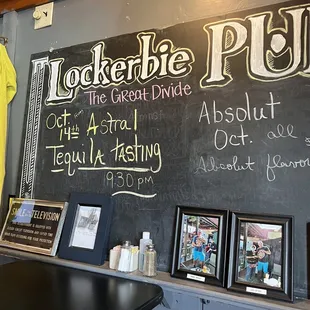 Lockerbie PU
The Great Divide
Oct 14th Astral
Tequila TASTING
9:30pm
Absolut
Oct. all
Absolut flavor
TELEVISION